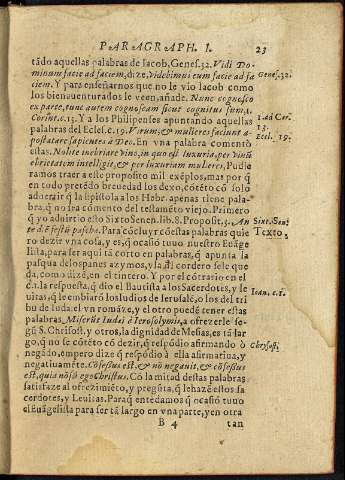 PARAGRAPH. I. 23
tãdo aquellas palabras de Iacob, Genes. 32. Vidi Do-
minum facie ad faciem, dize, Videbimus eum facie ad fa
ciem. Y para enseñarnos que no le vio Iacob como
los bienauenturados le veen, añade. Nunc cognosco
ex parte, tunc autem cognoscam sicut cognitus sum. 1.
Corint. c. 13. Y a los Philipenses apuntando aquellas
palabras del Eclesi. c. 19. Virum, & mulieres faciunt a-
postatare sapientes à Deo. En vna palabra comentò
estas. Nolite inebriare vino, in quo est luxuria, per vinũ
ebrietatem intelligit, & per luxuriam mulieres. Pudie
ramos traer a este proposito mil exẽplos, mas por q̃
en todo pretẽdo breuedad los dexo, cõtẽto cõ solo
aduertir q̃ la epistola a los Hebr. apenas tiene pala-
bra, q̃ no sea comento del testamẽto viejo. Primero
q̃ yo aduirtio esto Sixto Senen. lib. 8. Proposit. 3. An
te d. Festũ paschæ. Para cõcluyr cõ estas palabras quie
ro dezir vna cosa, y es, q̃ ocasiõ tuuo nuestro Euãge
lista, para ser aqui tã corto en palabras, q̃ apunta la
pasqua de los panes azymos, y la del cordero sele que
da, como dizẽ, en el tintero. Y por el cõtrario en el
c. 1. la respuesta, q̃ dio el Bautista a los Sacerdotes, y le
uitas, q̃ le embiarõ los Iudios de Ierusalẽ, o los del tri
bu de Iuda, el vn romãze, y el otro puede tener estas
palabras, Miserũt Iudæi à Ierosolymis, a ofrezerle se-
gũ S. Chrisost. y otros, la dignidad de Mesias, es tã lar-
go, q̃ no se cõtẽto cõ dezir, q̃ respõdio afirmando ò
negãdo, empero dize q̃ respõdio à ella afirmatiua, y
negatiuamẽte. Cõfessus est, & nõ negauit, & cõfessus
est, quia nõ sũ ego Christus. Cõ la mitad destas palabras
satisfaze al ofrezimiẽto, y pregũta, q̃ le hazẽ estos Sa
cerdotes, y Leuitas. Para q̃ entedamos q̃ ocasiõ tuuo
el Euãgelista para ser tã largo en vna parte, y en otra
B 4 tan
Genes. 32.
1. ad Cor.
13.
Eccl. 19.
Sixt. Sen.
Texto,
Ioan. c. 1.
Chrysost.